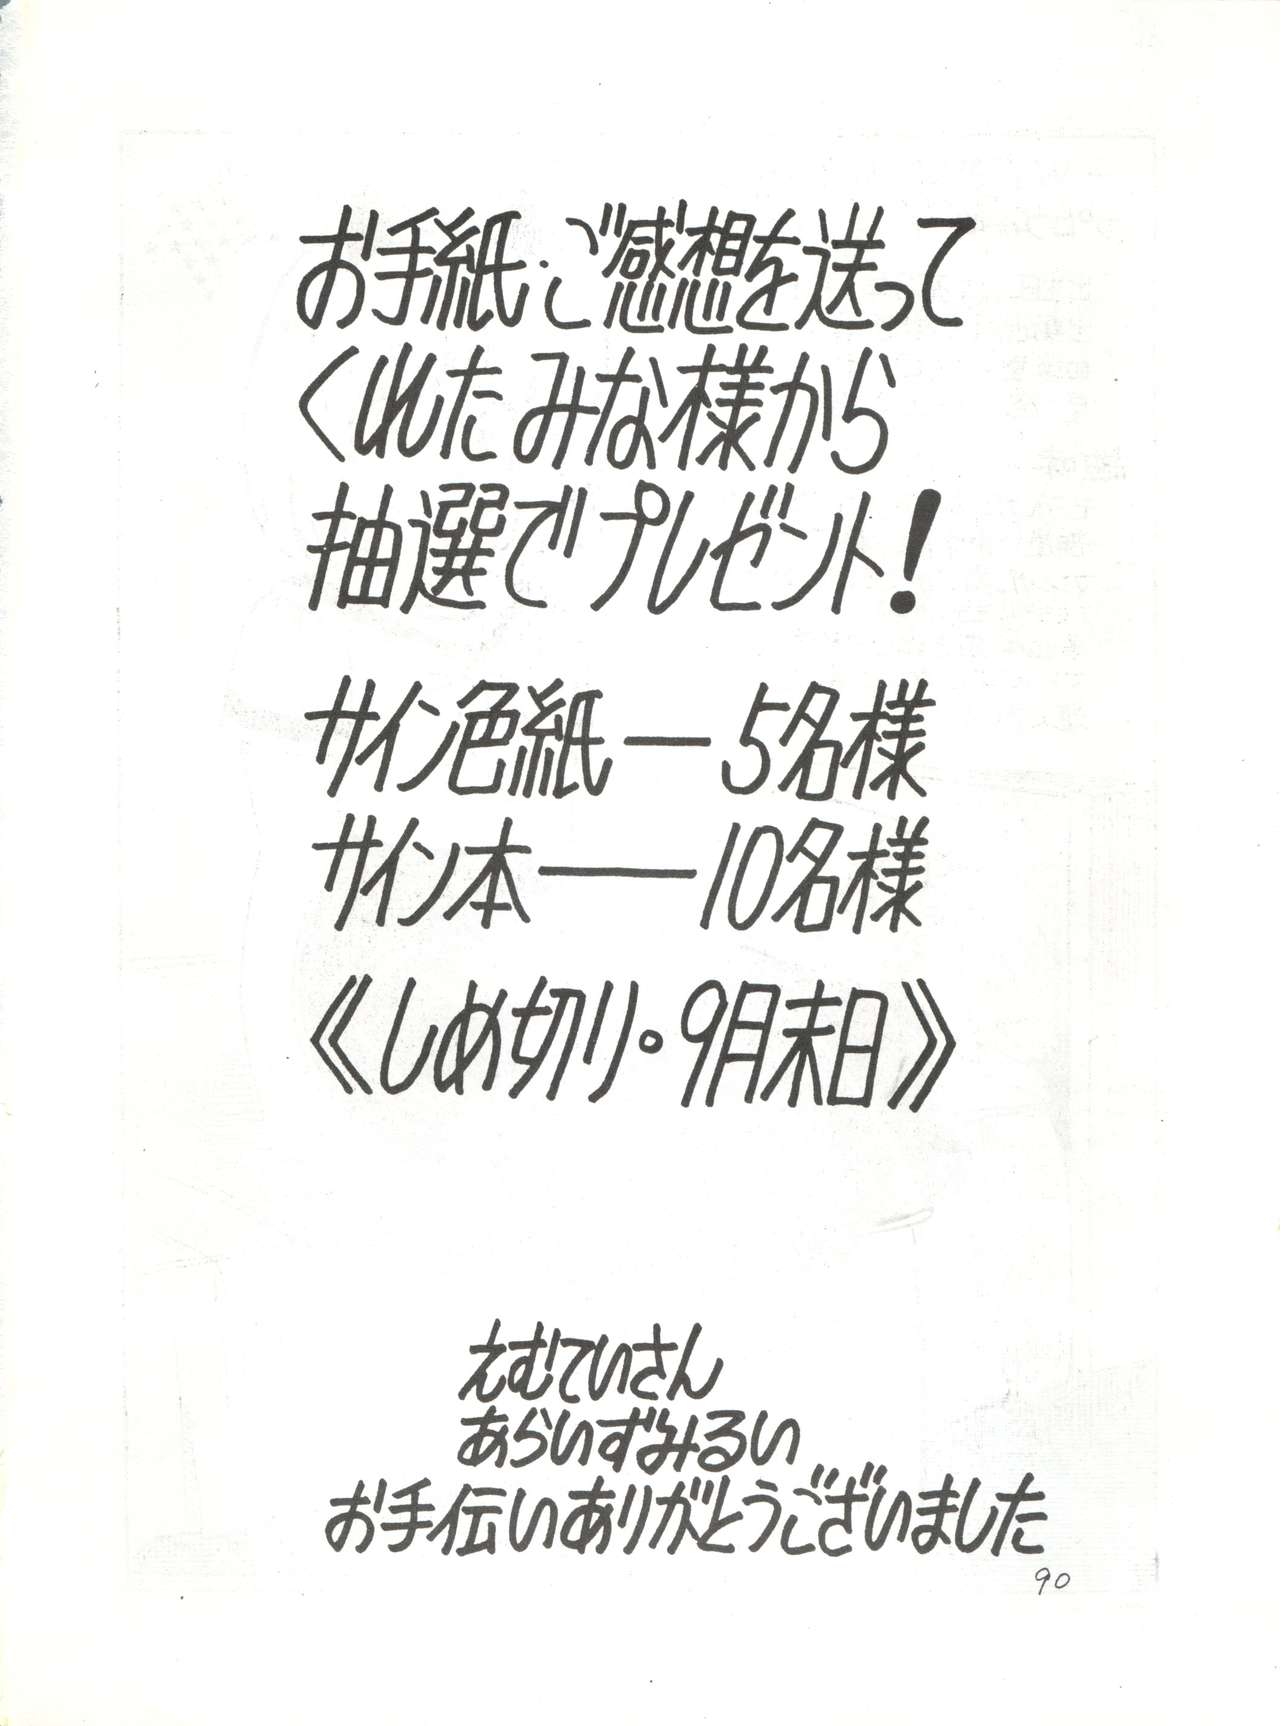 お手紙・ご感想を送って
くれたみな様から
抽選でプレゼント!
サイン色紙―5名様
サイン本――10名様
《しめ切り。9月末日》
えむてぃさん
あらいずみるい
お手伝いありがとうございました
90